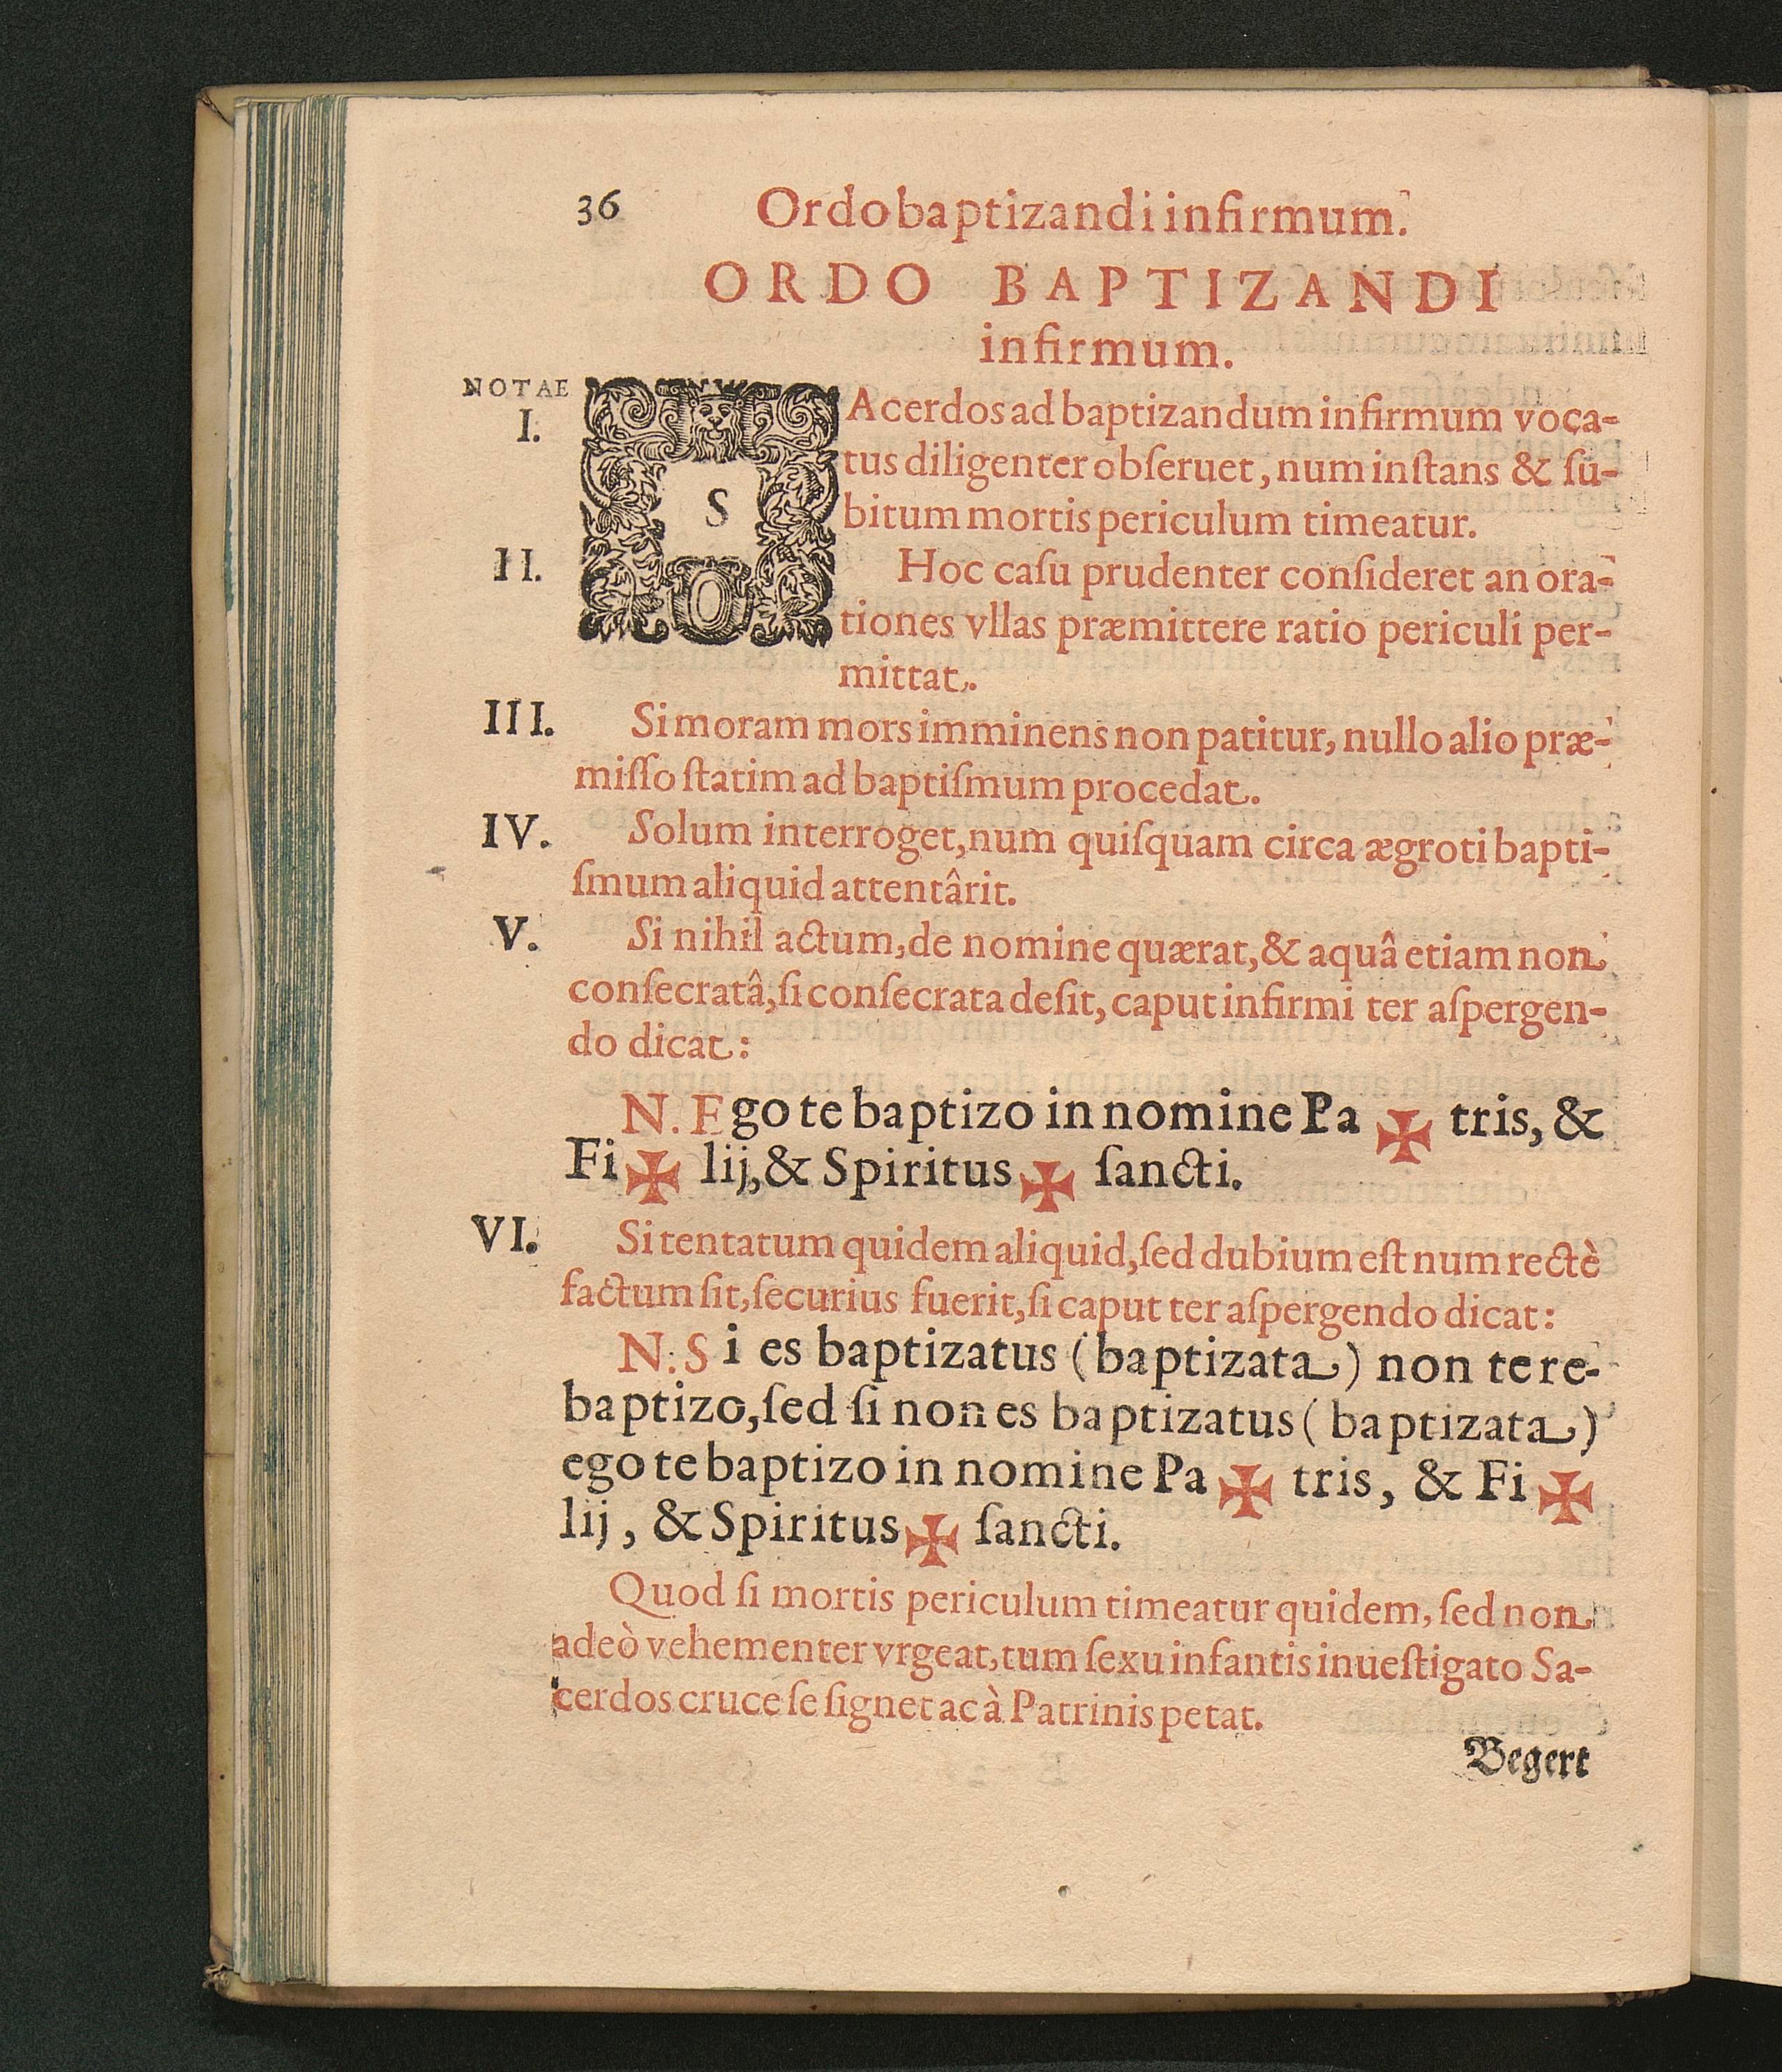 36 Ordo baptizandi infirmum.
ORDO BAPTIZANDI
infirmum.
NOTAE
I. SAcerdos ad baptizandum infirmum voca-
tus diligenter obſeruet, num inſtans & ſu-
bitum mortis periculum timeatur.
II. Hoc caſu prudenter conſideret an ora-
tiones vllas præmittere ratio periculi per-
mittat.
III. Si moram mors imminens non patitur, nullo alio præ-
miſſo ſtatim ad baptiſmum procedat.
IV. Solum interroget, num quiſquam circa ægroti bapti-
ſmum aliquid attentârit.
V. Si nihil actum, de nomine quærat, & aquâ etiam non
conſecratâ, ſi conſecrata deſit, caput infirmi ter aſpergen-
do dicat:
N. Ego te baptizo in nomine Pa ✠ tris, &
Fi ✠ lij, & Spiritus ✠ ſancti.
VI. Si tentatum quidem aliquid, ſed dubium eſt num rectè
factum ſit, ſecurius fuerit, ſi caput ter aſpergendo dicat:
N. Si es baptizatus (baptizata) non te re-
baptizo, ſed ſi non es baptizatus (baptizata)
ego te baptizo in nomine Pa ✠ tris, & Fi ✠
lij, & Spiritus ✠ ſancti.
Quod ſi mortis periculum timeatur quidem, ſed non
adeò vehementer vrgeat, tum ſexu infantis inueſtigato Sa-
cerdos cruce ſe ſignet ac à Patrinis petat.
Begert